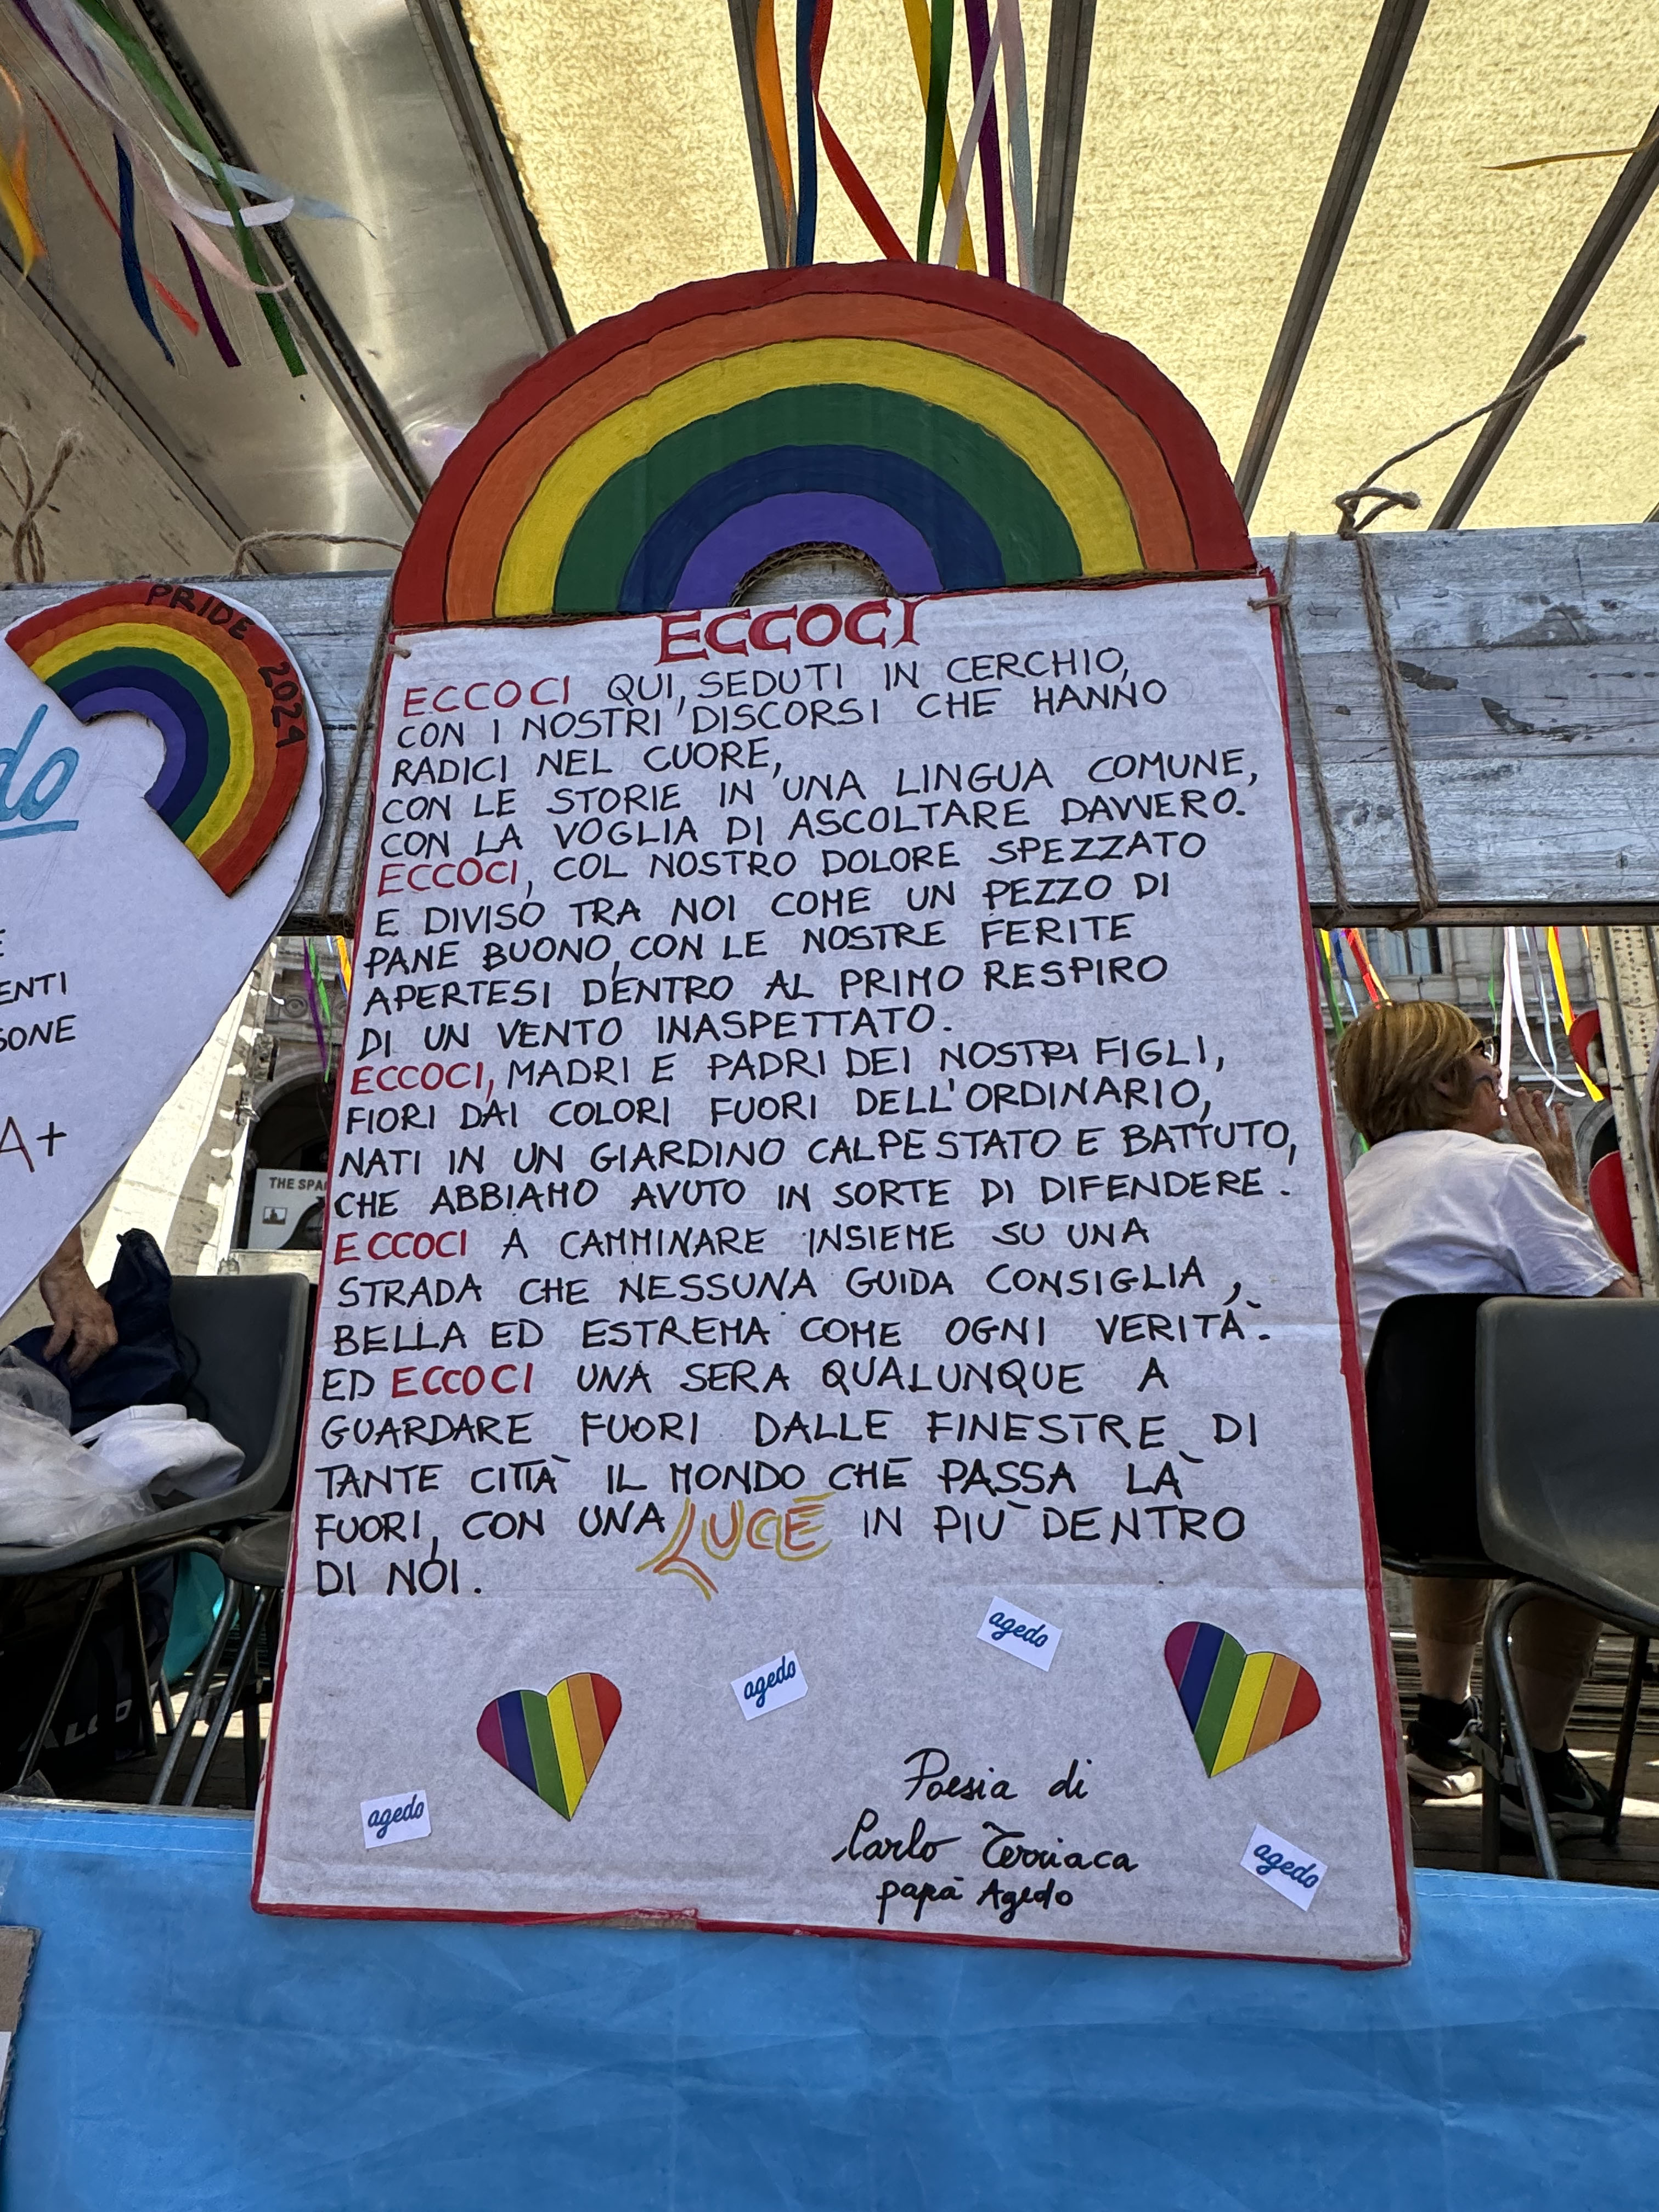 PRIDE 2024
do
E
ENTI
SONE
A+
THE SPA
ECCOCI
ECCOCI QUI, SEDUTI IN CERCHIO,
CON I NOSTRI DISCORSI CHE HANNO
RADICI NEL CUORE,
CON LE STORIE IN UNA LINGUA COMUNE,
CON LA VOGLIA DI ASCOLTARE DAVVERO.
ECCOCI, COL NOSTRO DOLORE SPEZZATO
E DIVISO TRA NOI COME UN PEZZO DI
PANE BUONO, CON LE NOSTRE FERITE
APERTESI DENTRO AL PRIMO RESPIRO
DI UN VENTO INASPETTATO.
ECCOCI, MADRI E PADRI DEI NOSTRI FIGLI,
FIORI DAI COLORI FUORI DELL'ORDINARIO,
NATI IN UN GIARDINO CALPESTATO E BATTUTO,
CHE ABBIAMO AVUTO IN SORTE DI DIFENDERE.
ECCOCI A CAMMINARE INSIEME SU UNA
STRADA CHE NESSUNA GUIDA CONSIGLIA,
BELLA ED ESTREMA COME OGNI VERITÀ.
ED ECCOCI UNA SERA QUALUNQUE A
GUARDARE FUORI DALLE FINESTRE DI
TANTE CITTÀ IL MONDO CHE PASSA LÀ
FUORI, CON UNA LUCE IN PIÙ DENTRO
DI NOI.
agedo
agedo
agedo
agedo
Poesia di
Carlo Terriaca
papà Agedo